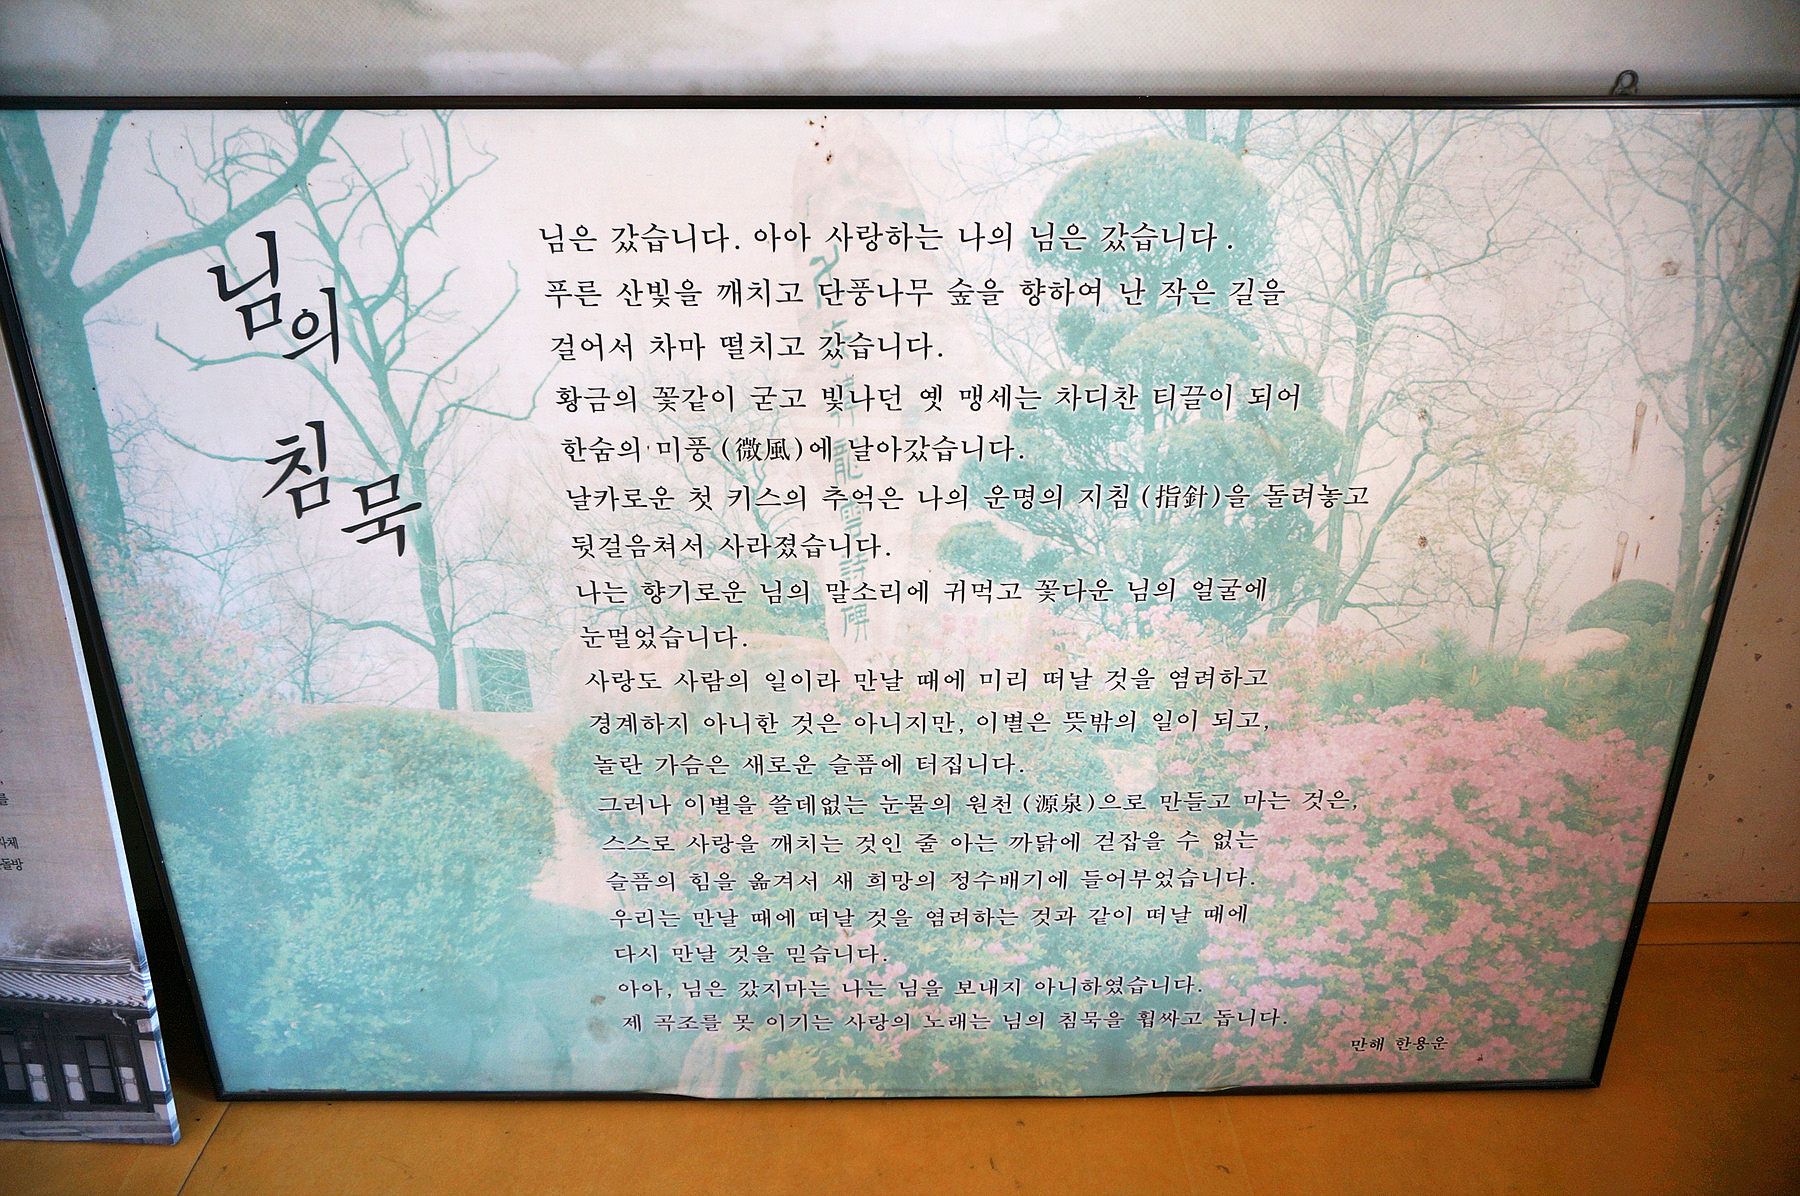 님의
침묵
님은 갔습니다. 아아 사랑하는 나의 님은 갔습니다.
푸른 산빛을 깨치고 단풍나무 숲을 향하여 난 작은 길을
걸어서 차마 떨치고 갔습니다.
황금의 꽃같이 굳고 빛나던 옛 맹세는 차디찬 티끌이 되어
한숨의 미풍(微風)에 날아갔습니다.
날카로운 첫 키스의 추억은 나의 운명의 지침(指針)을 돌려놓고
뒷걸음쳐서 사라졌습니다.
나는 향기로운 님의 말소리에 귀먹고 꽃다운 님의 얼굴에
눈멀었습니다.
사랑도 사람의 일이라 만날 때에 미리 떠날 것을 염려하고
경계하지 아니한 것은 아니지만, 이별은 뜻밖의 일이 되고,
놀란 가슴은 새로운 슬픔에 터집니다.
그러나 이별을 쓸데없는 눈물의 원천(源泉)으로 만들고 마는 것은,
스스로 사랑을 깨치는 것인 줄 아는 까닭에 걷잡을 수 없는
슬픔의 힘을 옮겨서 새 희망의 정수배기에 들어부었습니다.
우리는 만날 때에 떠날 것을 염려하는 것과 같이 떠날 때에
다시 만날 것을 믿습니다.
아아, 님은 갔지마는 나는 님을 보내지 아니하였습니다.
제 곡조를 못 이기는 사랑의 노래는 님의 침묵을 휩싸고 돕니다.
만해 한용운